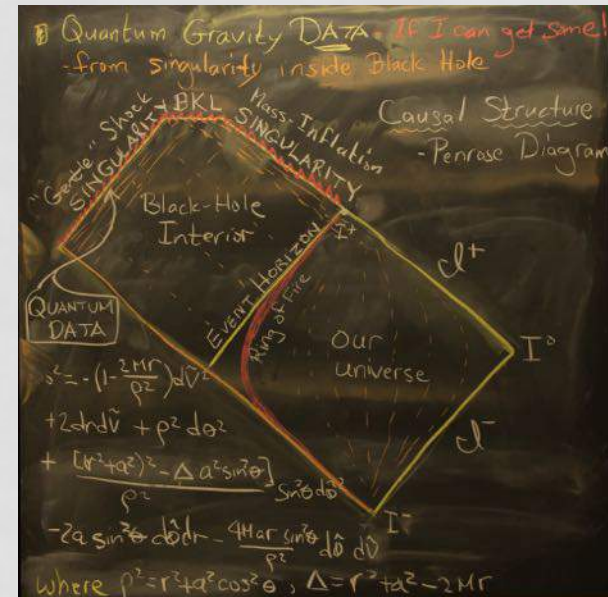 Quantum Gravity DATA - If I can get some!
- from singularity inside Black Hole
Causal Structure
- Penrose Diagram
"Gentle" Shock SINGULARITY
BKL
Mass-Inflation SINGULARITY
Black-Hole
Interior
I⁺
EVENT HORIZON
Ring of Fire
QUANTUM
DATA
Our
universe
𝓘⁺
I⁰
𝓘⁻
I⁻
s²=-(1-2Mr/ρ²)dṽ²
+2drdṽ + ρ²dθ²
+ [(r²+a²)²-Δa²sin²θ]/ρ² sin²θdφ̃²
-2a sin²θ dφ̃dr - 4Mar sin²θ/ρ² dφ̃ dṽ
where ρ²=r²+a²cos²θ, Δ=r²+a²-2Mr